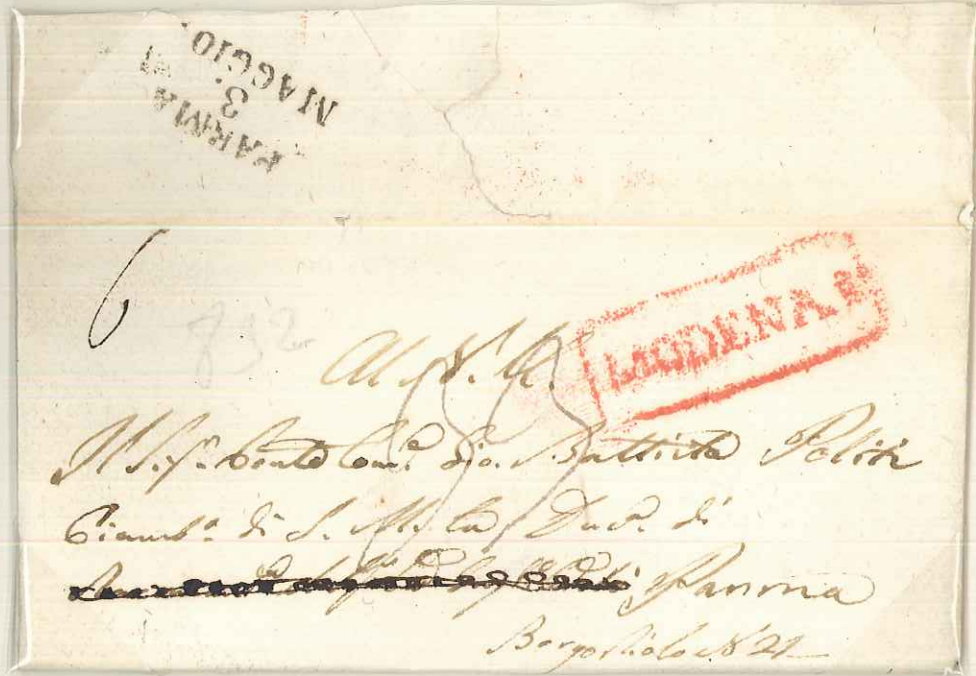 PARMA
3
MAGGIO.
6
852
MODENA
All' N. U.
Il Sigr. Conte Comre. Gio. Battista Politi
Ciambno. di S. M. la Duca. di
Parma
Borgo Riolo N° 21